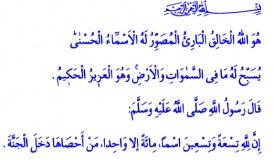 بِسْمِ اللهِ الرَّحْمٰنِ الرَّحِيمِ
هُوَ اللهُ الْخَالِقُ الْبَارِئُ الْمُصَوِّرُ لَهُ الْاَسْمَاءُ الْحُسْنٰى
يُسَبِّحُ لَهُ مَا فِى السَّمٰوَاتِ وَالْاَرْضِ وَهُوَ الْعَزِيزُ الْحَكِيمُ .
قَالَ رَسُولُ اللهِ صَلَّى اللهُ عَلَيْهِ وَسَلَّمَ:
اِنَّ لِلّٰهِ تِسْعَةً وَتِسْعِينَ اسْمًا، مِائَةً اِلَّا وَاحِدا، مَنْ اَحْصَاهَا دَخَلَ الْجَنَّةَ .